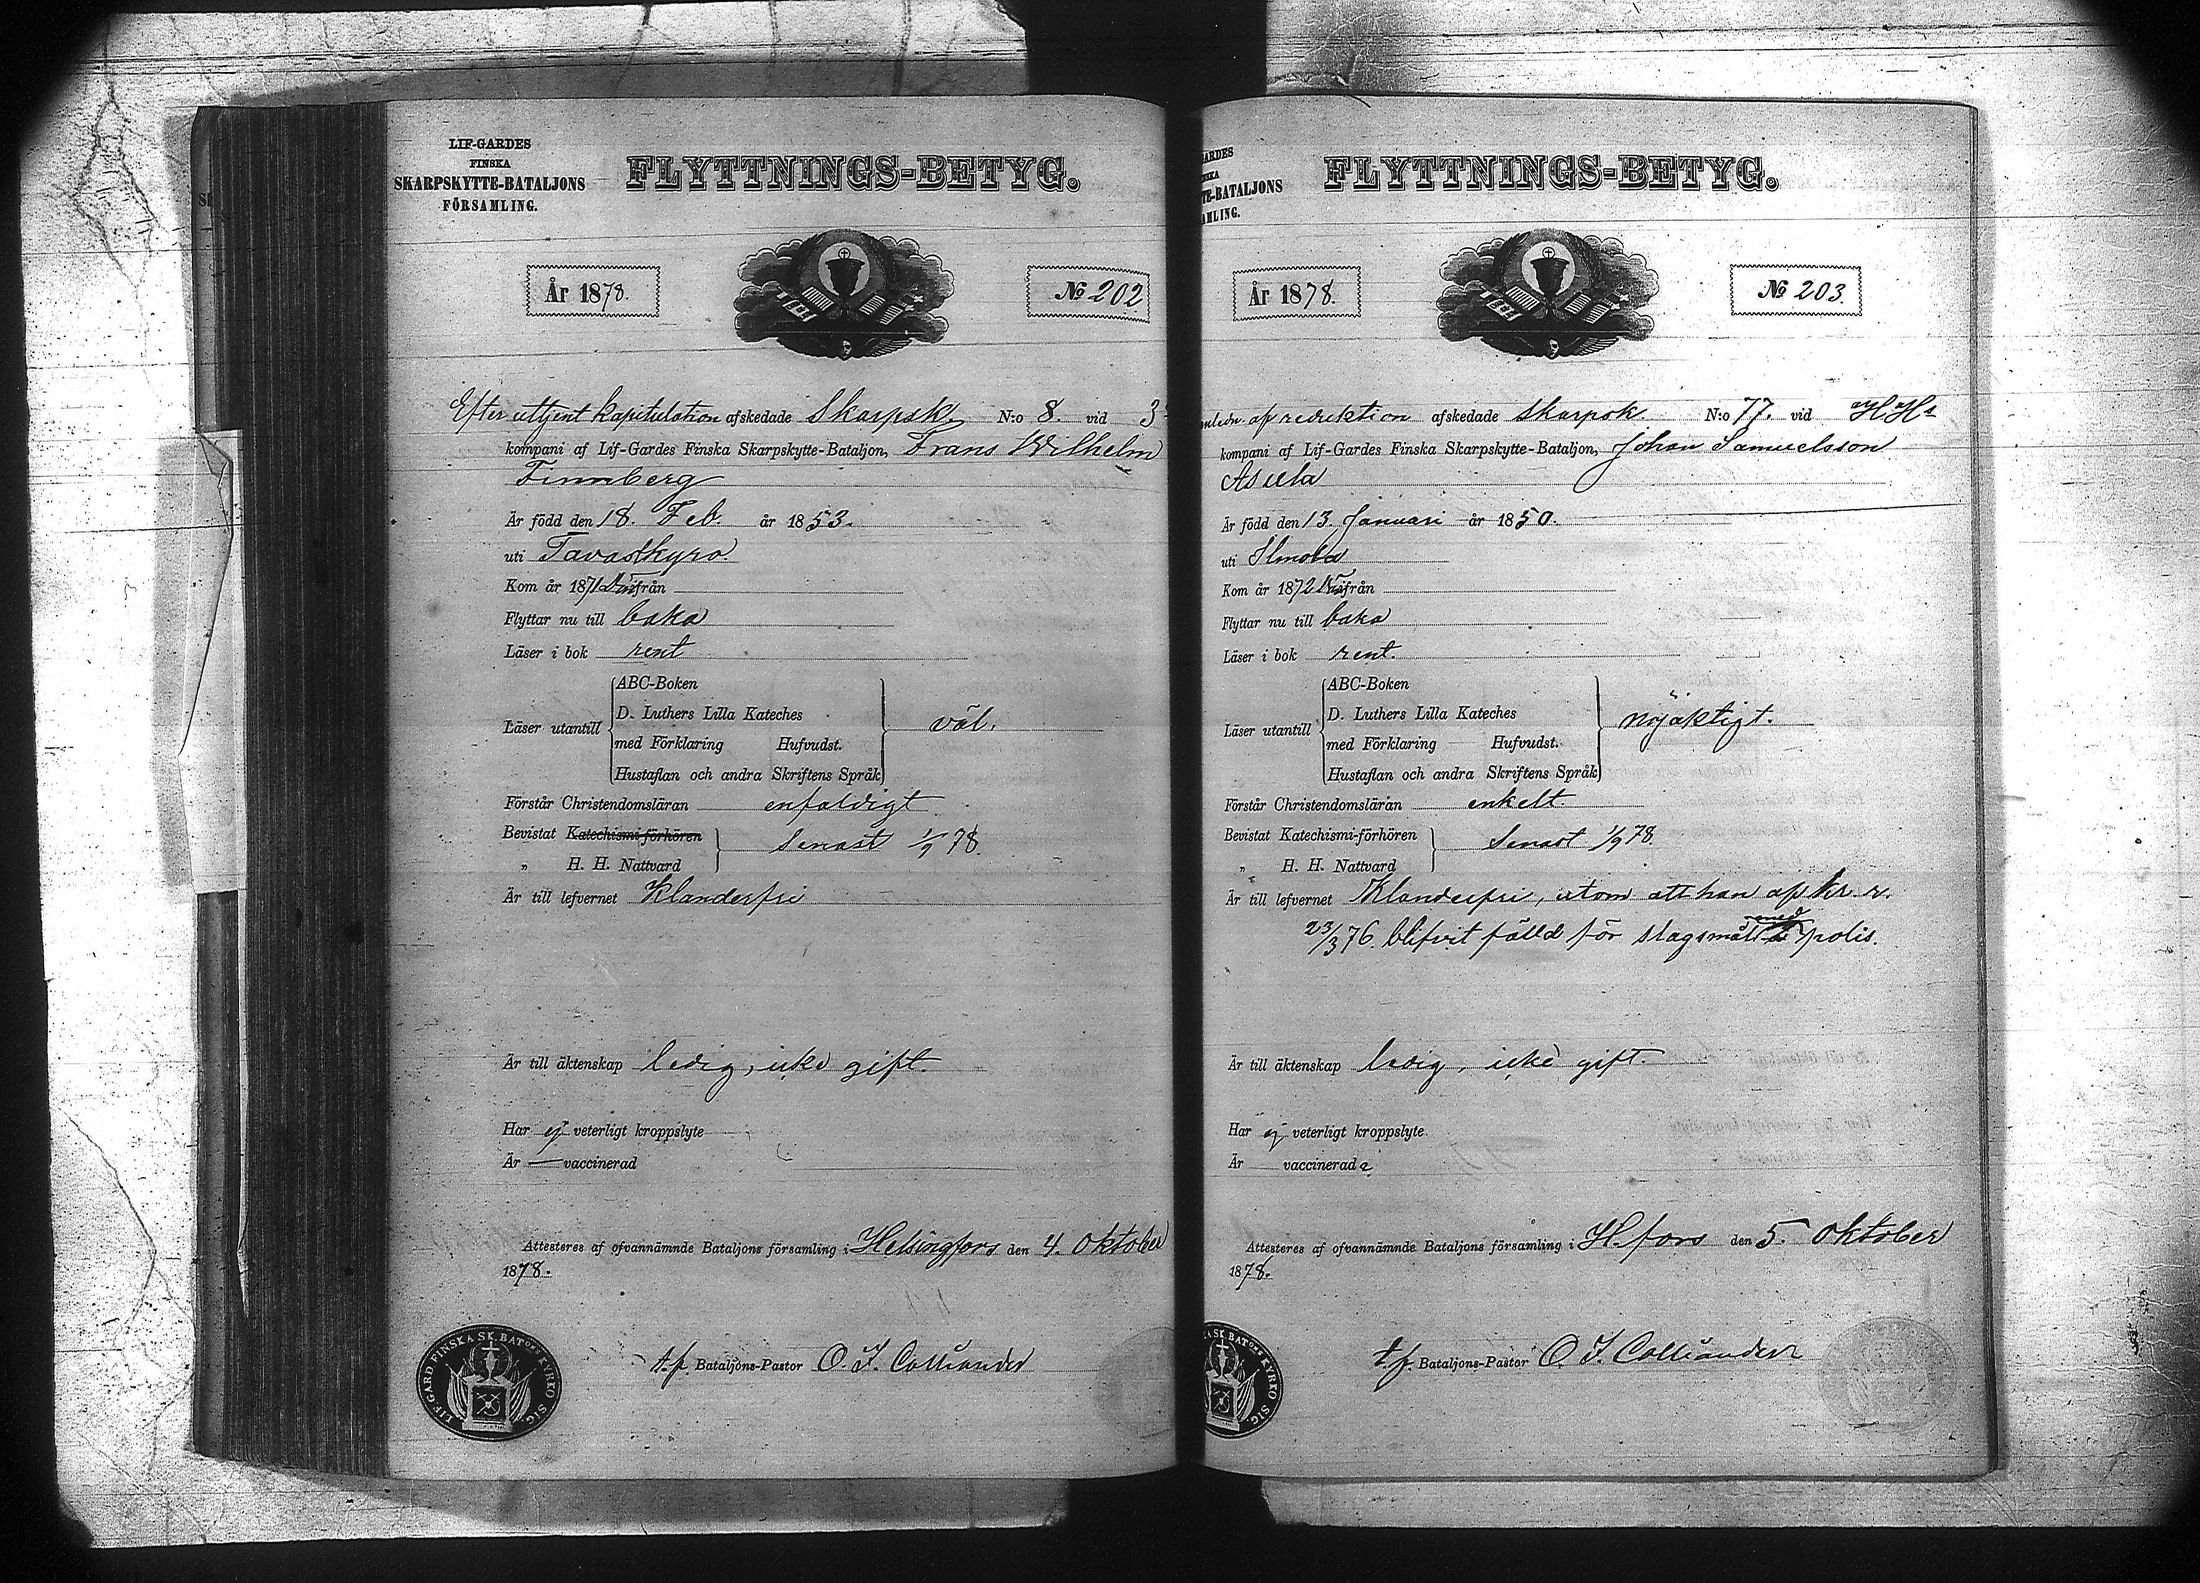 LIF-GARDES
FINSKA
SKARPSKYTTE-BATALJONS
FÖRSAMLING.
FLYTTNINGS-BETYG.
År 1878.
№ 202
Efter uttjent kapitulation afskedade Skarpsk. N:o 8. vid 3
kompani af Lif-Gardes Finska Skarpskytte-Bataljon, Frans Wilhelm
Finnberg
Är född den 18. Feb. år 1853.
uti Tavastkyro
Kom år 1871 ifrån
Flyttar nu till baka
Läser i bok rent
Läser utantill
ABC-Boken
D. Luthers Lilla Kateches
med Förklaring Hufvudst.
Hustaflan och andra Skriftens Språk
väl.
Förstår Christendomsläran enfaldigt
Bevistat Katechismi-förhören
„ H. H. Nattvard
Senast 1/9 78.
Är till lefvernet Klanderfri
Är till äktenskap ledig, icke gift.
Har ej veterligt kroppslyte
Är — vaccinerad
Attesteres af ofvannämnde Bataljons församling i Helsingfors den 4. Oktober
1878.
t.f. Bataljons-Pastor O. I. Colliander
LIF-GARD. FINSKA SK. BATONS KYRKO SIG.
ARDES
SKA
TE-BATALJONS
AMLING.
FLYTTNINGS-BETYG.
År 1878.
№ 203.
af reduktion afskedade Skarpsk. N:o 77. vid H. H:s
kompani af Lif-Gardes Finska Skarpskytte-Bataljon, Johan Samuelsson
Är född den 13. Januari år 1850.
uti Ilmola
Kom år 1872 ifrån
Flyttar nu till baka
Läser i bok rent.
Läser utantill
ABC-Boken
D. Luthers Lilla Kateches
med Förklaring Hufvudst.
Hustaflan och andra Skriftens Språk
nöjaktigt.
Förstår Christendomsläran enkelt.
Bevistat Katechismi-förhören
„ H. H. Nattvard
Senast 1/9 78.
Är till lefvernet Klanderfri, utom att han af kr. r.
23/3 76. blifvit fälld för slagsmål med polis.
Är till äktenskap ledig, icke gift.
Har ej veterligt kroppslyte.
Är vaccinerad
Attesteres af ofvannämnde Bataljons församling i H.fors den 5. Oktober
1878.
t.f. Bataljons-Pastor O. I. Colliander
SK. BATONS KYRKO SIG.